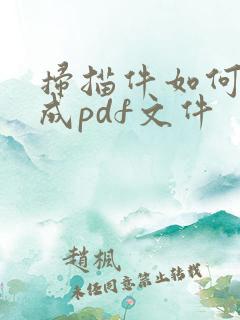 扫描件如何
成pdf文件
趙楓
未经同意禁止转载